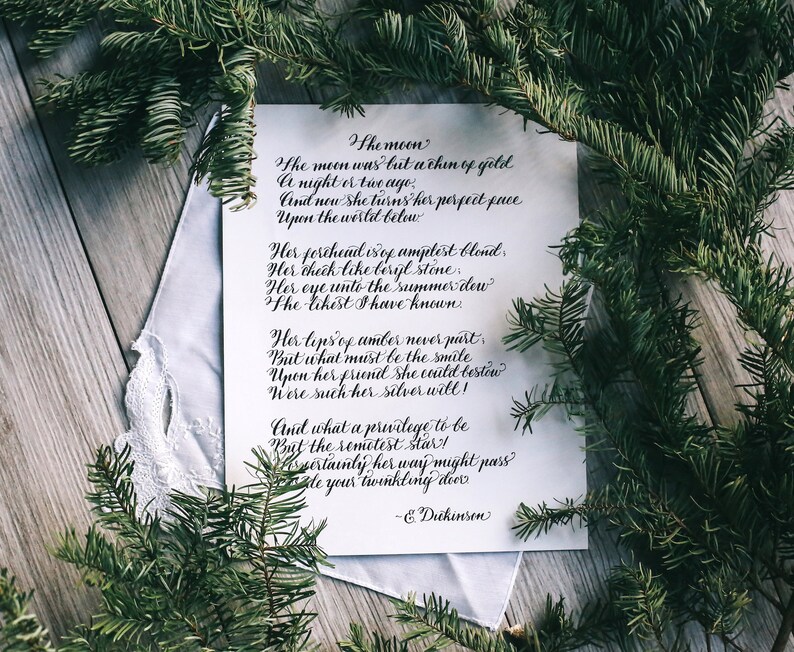 The moon
The moon was but a chin of gold
A night or two ago,
And now she turns her perfect face
Upon the world below
Her forehead is of amplest blond;
Her cheek like beryl stone;
Her eye unto the summer dew
The likest I have known.
Her lips of amber never part;
But what must be the smile
Upon her friend she could bestow
Were such her silver will!
And what a privilege to be
But the remotest star!
certainly her way might pass
your twinkling door.
~E. Dickinson